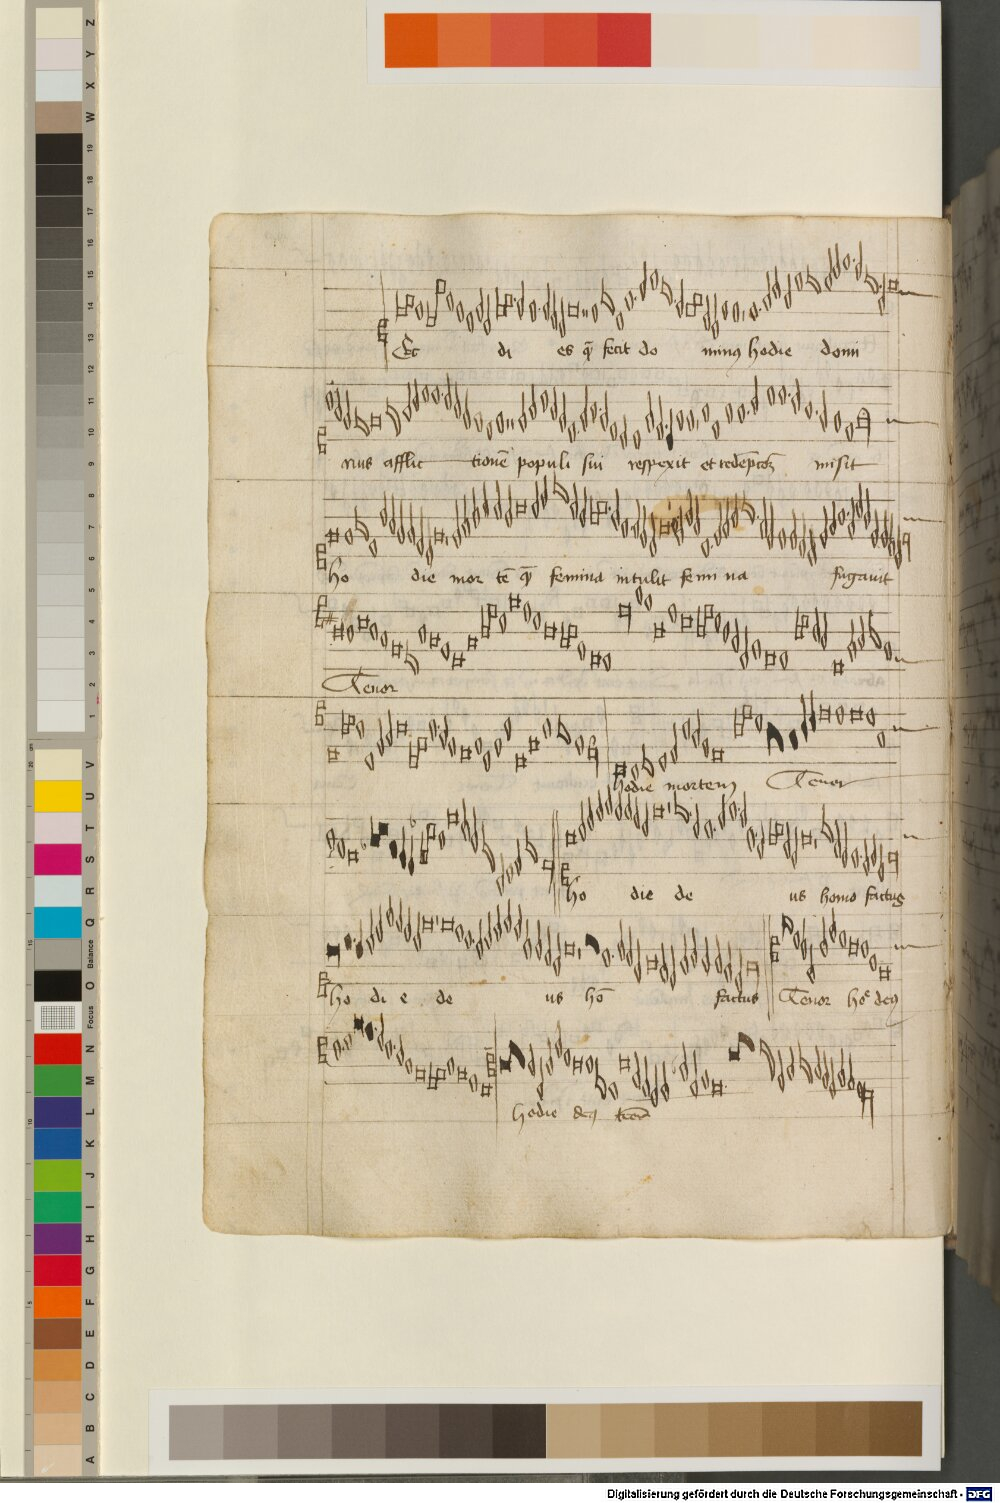 Ec di es q̄ fecit do minꝰ hodie domi
nus afflic tionē populi sui respexit et redēpcōꝫ misit
ho die mor tē q̄ femina intulit femi na fugauit
Tenor
hodie mortem Tenor
ho die de us homo factus
ho di e de us hō factus Tenor ho deꝰ
hodie deꝰ
Z Y X W 19 18 17 16 15 14 13 12 11 10 9 8 7 6 5 4 3 2 1
V U T S R Q Balance O Focus N M L K J I H G F E D C B A
Digitalisierung gefördert durch die Deutsche Forschungsgemeinschaft - DFG